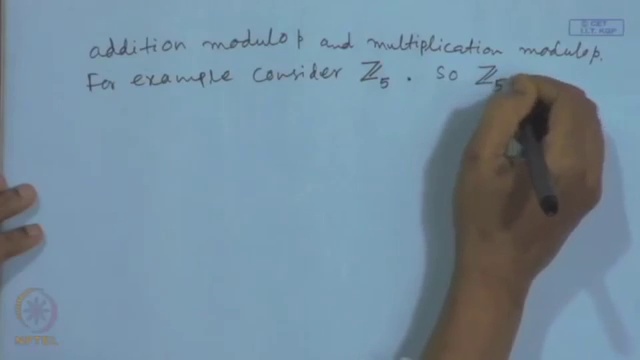 © CET
I.I.T. KGP
addition modulo p and multiplication modulo p.
For example consider ℤ₅ . So ℤ₅
NPTEL